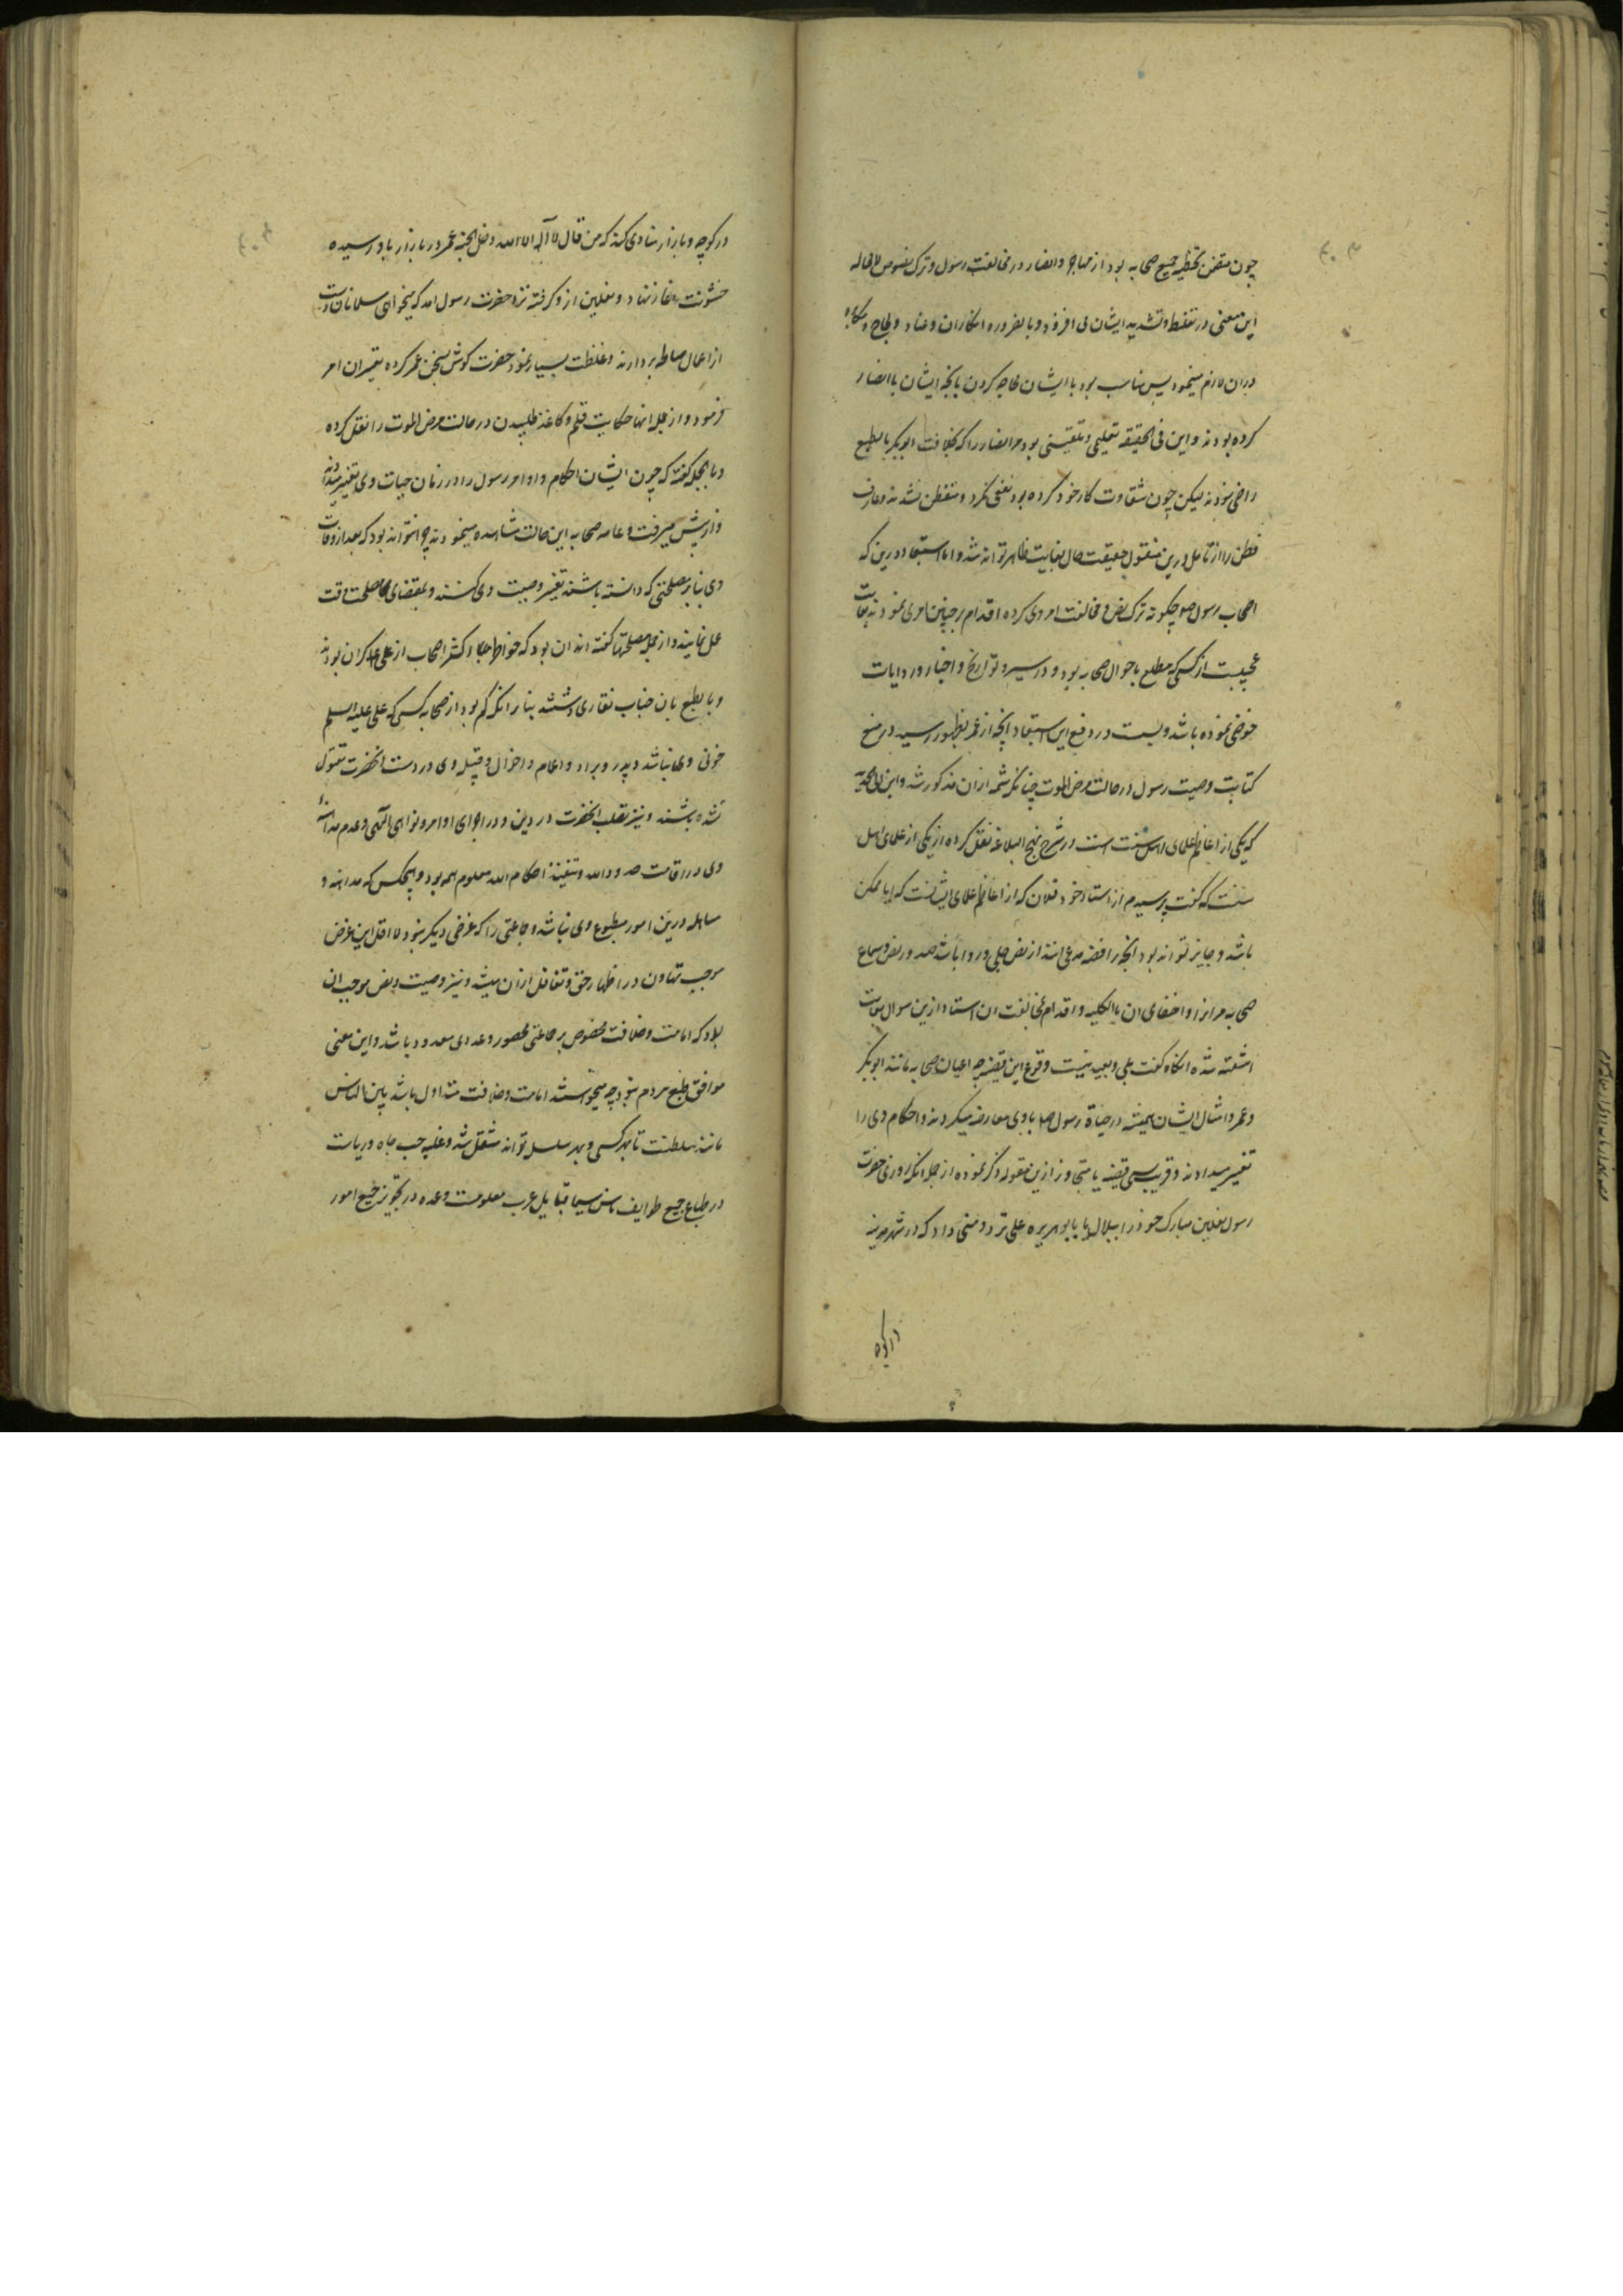 چون متضمن تخطیه جمیع صحابه بود از مهاجر و انصار در مخالفت رسول و ترک نصوص لامحاله
این معنی در تغلیظ و تشدید ایشان می افزود و بالضروره انکار ان و عناد و لجاج و مکابره
دران لازم مینمود پس مناسب بود با ایشان محاجه کردن بانچه ایشان با انصار
کرده بودند و این فی الحقیقه تعلیمی و تلقینی بود مر انصار را که بخلافت ابوبکر بالطبع
راضی نبودند لیکن چون شقاوت کار خود کرده بود نفعی نکرد و متفطن نشدند و عارف
فطن را از تامل درین منقول حقیقت حال بغایت ظاهر تواند شد و اما استبعاد درین که
اصحاب رسول صلعم چگونه ترک نص و مخالفت امر وی کرده اقدام بر چنین امری نمودند بغایت
عجیبست از کسی که مطلع باحوال صحابه بود و در سیر و تواریخ و اخبار و روایات
خوضی نموده باشد و بست در دفع این استبعاد انچه از عمر بظهور رسید در منع
کتابت وصیت رسول در حالت مرض الموت چنانکه شمه ازان مذکور شد و ابن ابی الحدید
که یکی از اعاظم علمای اهل سنت است در شرح نهج البلاغه نقل کرده از یکی از علمای اهل
سنت که گفت پرسیدم از استاد خود فلان که از اعاظم علمای ایشانست که ایا ممکن
باشد و جایز تواند بود انچه رافضه مدعی انند از نص جلی و روا باشد صدور نص و سماع
صحابه مرانرا و اخفای ان بالکلیه و اقدام بمخالفت ان استاد ازین سوال بغایت
اشفته شده انگاه گفت بلی و بعید نیست وقوع این قضیه چه اعیان صحابه مانند ابوبکر
و عمر و امثال ایشان همیشه در حیاة رسول صلعم با وی معارضه میکردند و احکام وی را
تغییر میدادند و قریب بسی قضیه یا متجاوز ازین مقوله ذکر نموده از جمله انکه روزی حضرت
رسول نعلین مبارک خود را ببلال یا بابوهریره علی تردد منی داد که در شهر مدینه
در کوچه
در کوچه و بازار منادی کند که من قال لا اله الا الله دخل الجنه عمر در بازار باو رسیده
خشونت بنهاد و نعلین ازو گرفته نزد حضرت رسول امد که میخواهی مسلمانان دست
از اعمال صالحه بردارند و غلظت بسیار نمود حضرت گوش بسخن عمر کرده بتغییر ان امر
فرمود و از جمله انها حکایت قلم و کاغذ طلبیدن در حالت مرض الموت را نقل کرده
و بالجمله گفته که چون ایشان احکام و اوامر رسول را در زمان حیات وی تغییر میدادند
و از پیش میرفت و عامه صحابه این حالت مشاهده مینمودند چرا نتواند بود که بعد از وفات
وی بنابر مصلحتی که دانسته باشند تغییر وصیت وی کنند و بمقتضای مصلحت وقت
عمل نمایند و از جمله مصلحتها گفته اند ان بود که خواطر اکثر اصحاب از علی گران بودند
و بالطبع بان جناب نقاری داشتند بنابر انکه کم بود از صحابه کسی که علی علیه السلم
خونی وی نباشد و پدر و برادر و اعمام و اخوال و قبیله وی در دست انحضرت مقتول
نشده باشند و نیز تصلب انحضرت در دین و در اجرای اوامر و نواهی الهی و عدم مداهنه
وی در اقامت حدود الله و تنفیذ احکام الله معلوم همه بود و هیچکس که مداهنه و
مساهله درین امور مطبوع وی نباشد و جماعتی را که غرضی دیگر نبود لااقل این غرض
موجب تهاون در اظهار حق و تغافل ازان میشد و نیز وصیت و نص موجب ان
بود که امامت و خلافت مخصوص بر جماعتی محصور و عددی معدود باشد و این معنی
موافق طبع مردم نبود چه میخواستند امامت و خلافت متداول باشد بین الناس
مانند سلطنت تا بهر کسی و بهر سلسله تواند منتقل شد و غلبه حب جاه و ریاست
در طباع جمیع طوایف ناس سیما قبایل عرب معلومست و عمده در تجویز جمیع امور